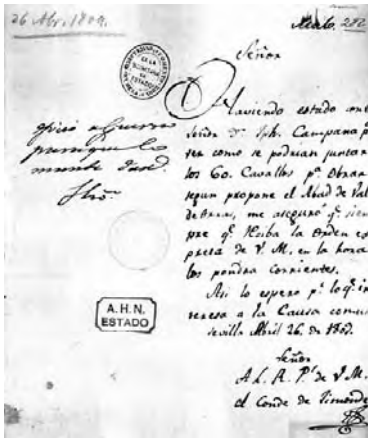 26 Abr. 1809.
Señor
Haviendo estado con
Señor Dn. Jph. Campana pa
ver como se podrian juntar
los 60. Cavallos pa. Obrar
segun propone el Abad de Val
de Aran, me aseguró q. siem
pre q. Reciba la Orden ex
presa de V. M. en la hora
los pondra corrientes.
Asi lo espero pr. lo q. in
teresa a la Causa comun
Sevilla Abril 26. de 1809.
Señor
A L. R. Ps. de V. M.
el Conde de
A.H.N.
ESTADO